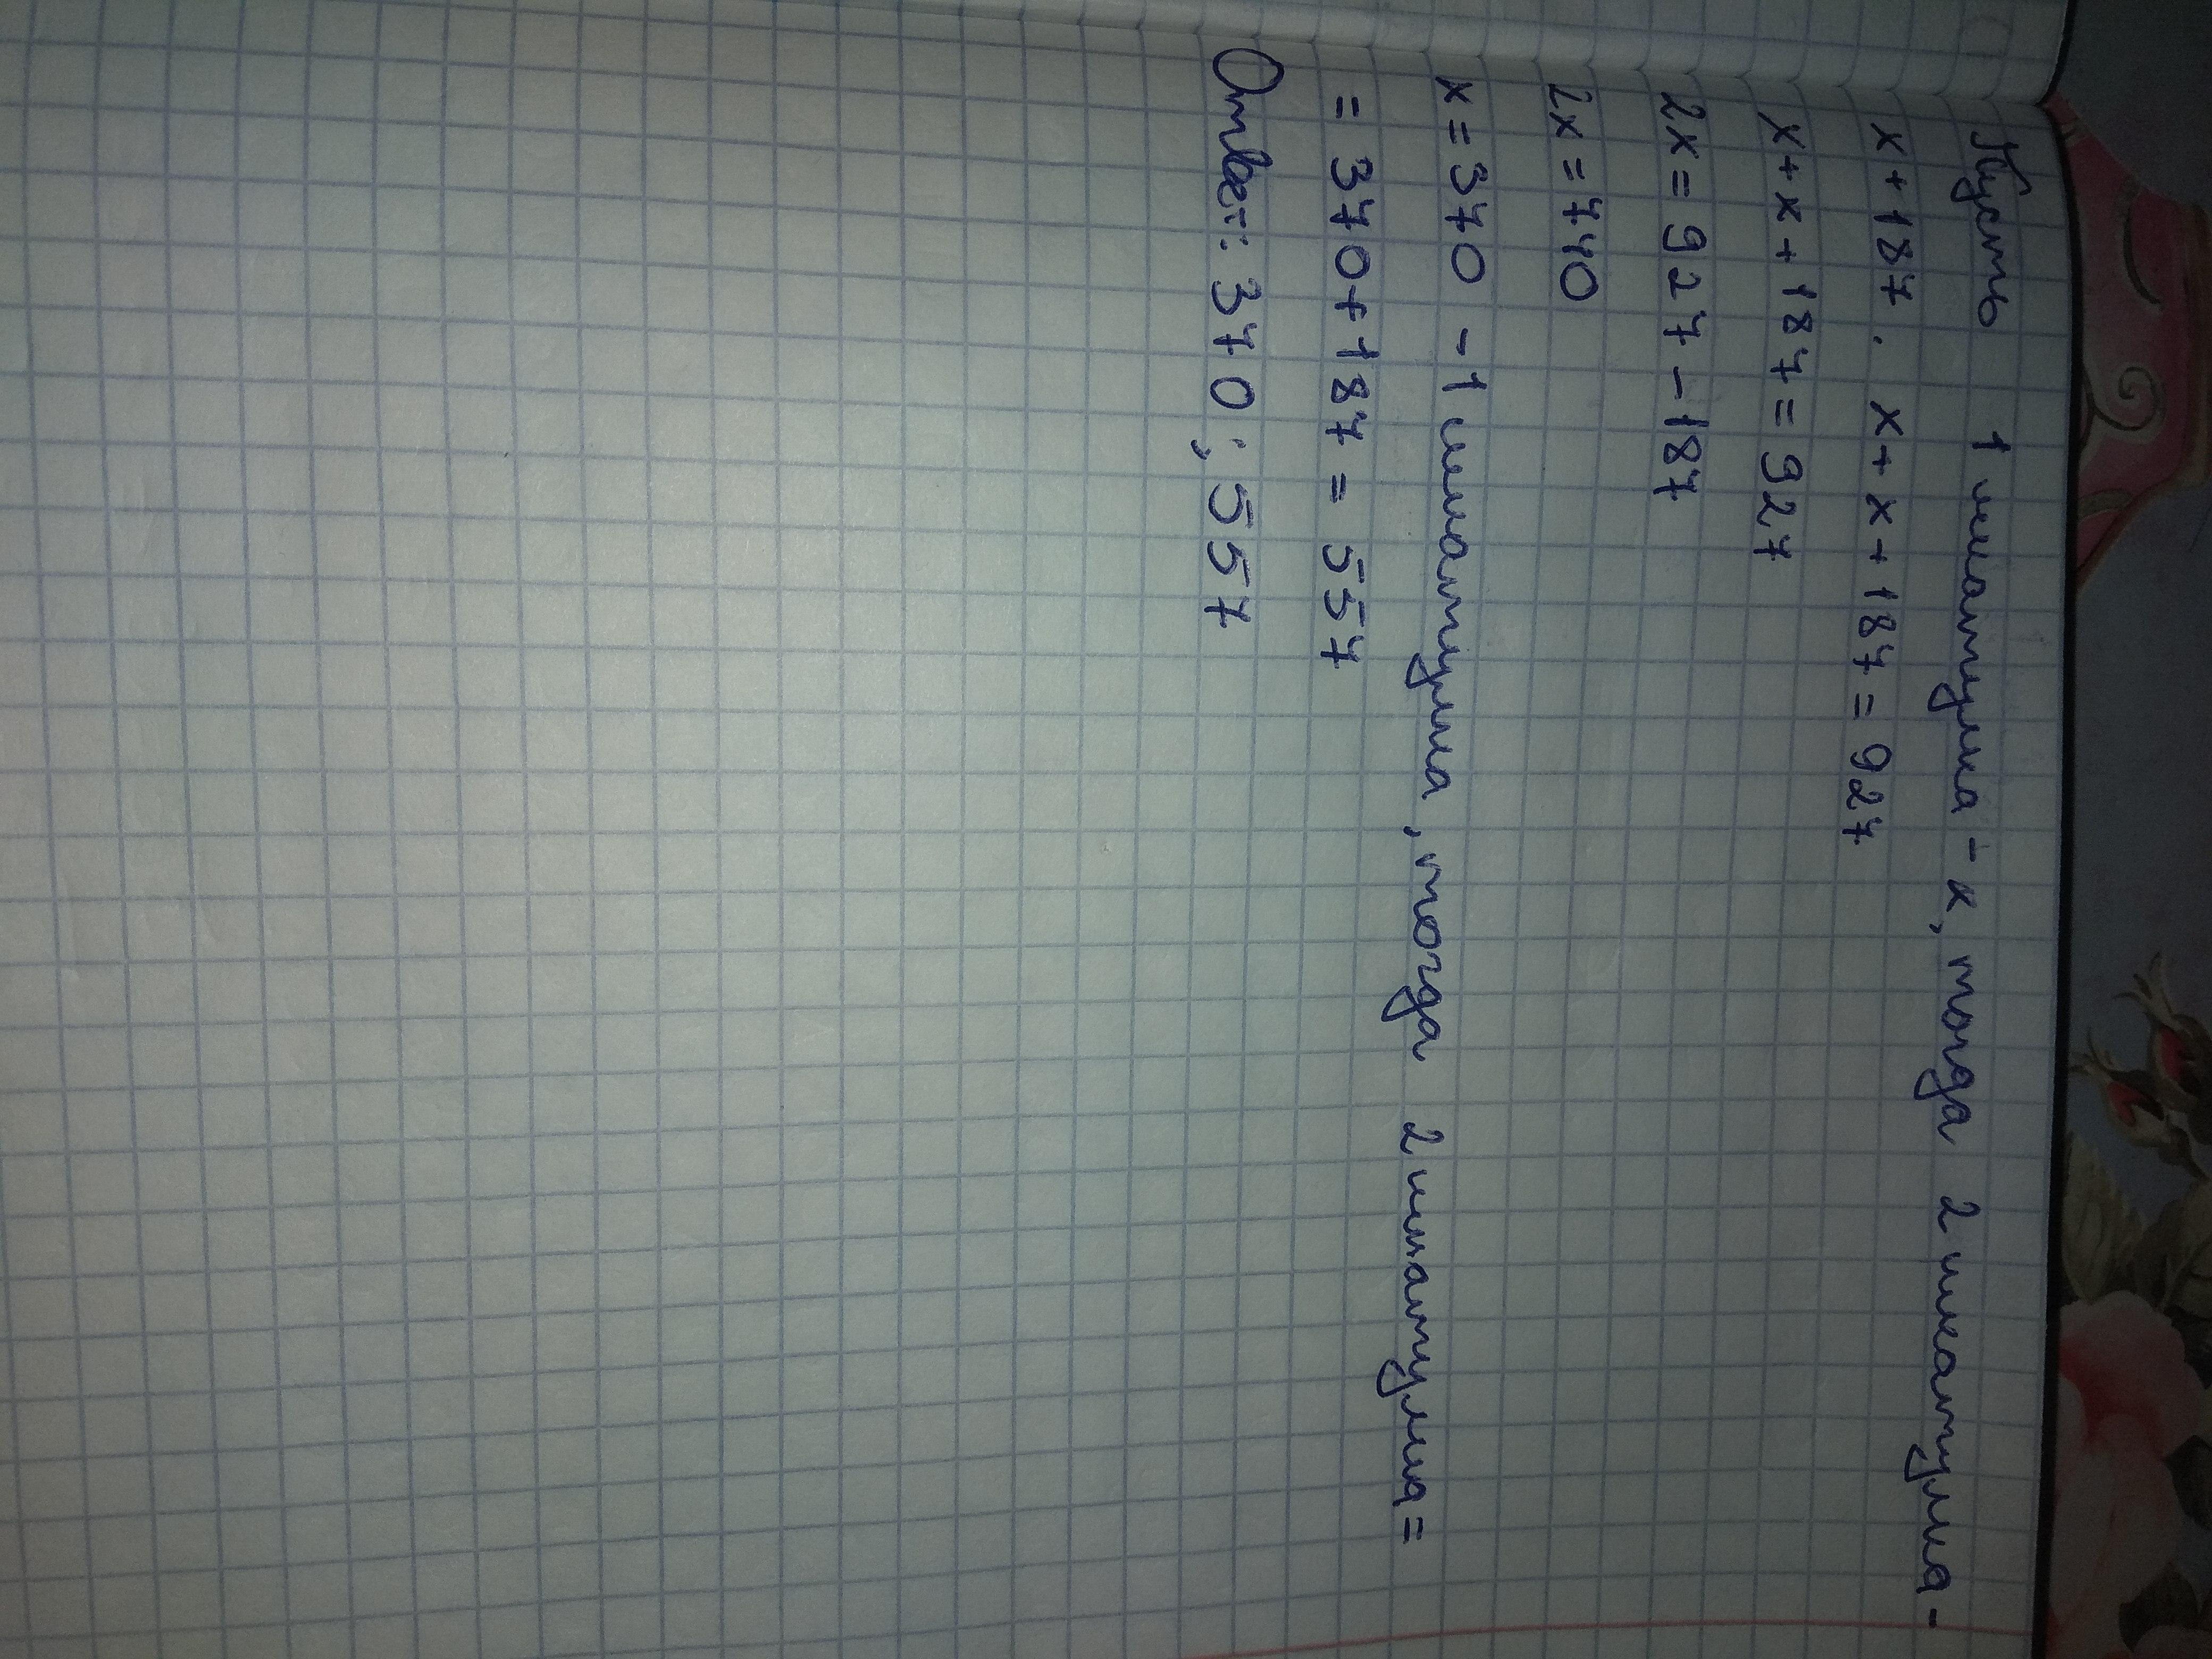 Пусть 1 шкатулка - x, тогда 2 шкатулка -
x + 187. x + x + 187 = 927
x + x + 187 = 927
2x = 927 - 187
2x = 740
x = 370 - 1 шкатулка, тогда 2 шкатулка =
= 370 + 187 = 557
Ответ: 370; 557